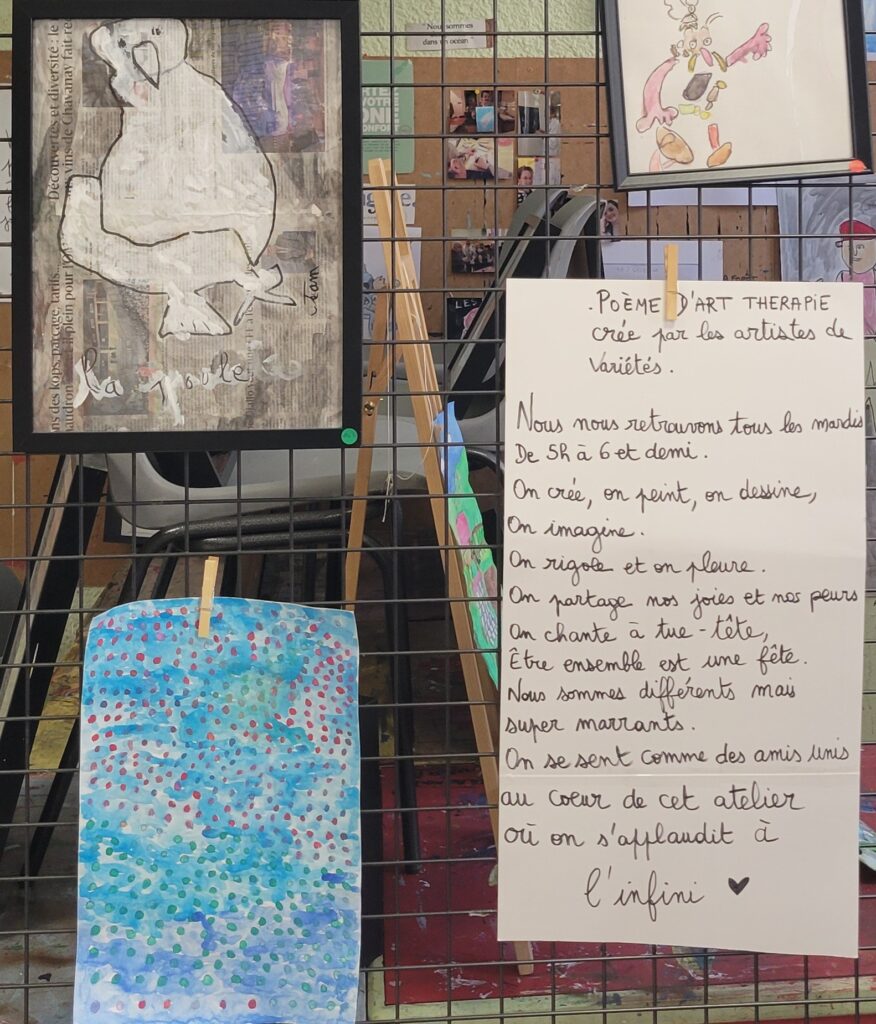 Découvertes et diversité : le
vins de Chavanay fait
ns des kops, parcage, tarifs
plein pour l'O
La poule
"Nous sommes
dans un océan"
.POÈME D'ART THERAPIE
crée par les artistes de
Variétés.
Nous nous retrouvons tous les mardis
De 5h à 6 et demi.
On crée, on peint, on dessine,
On imagine.
On rigole et on pleure.
On partage nos joies et nos peurs
On chante à tue-tête,
Être ensemble est une fête.
Nous sommes différents mais
super marrants.
On se sent comme des amis unis
au coeur de cet atelier
où on s'applaudit à
l'infini ♥